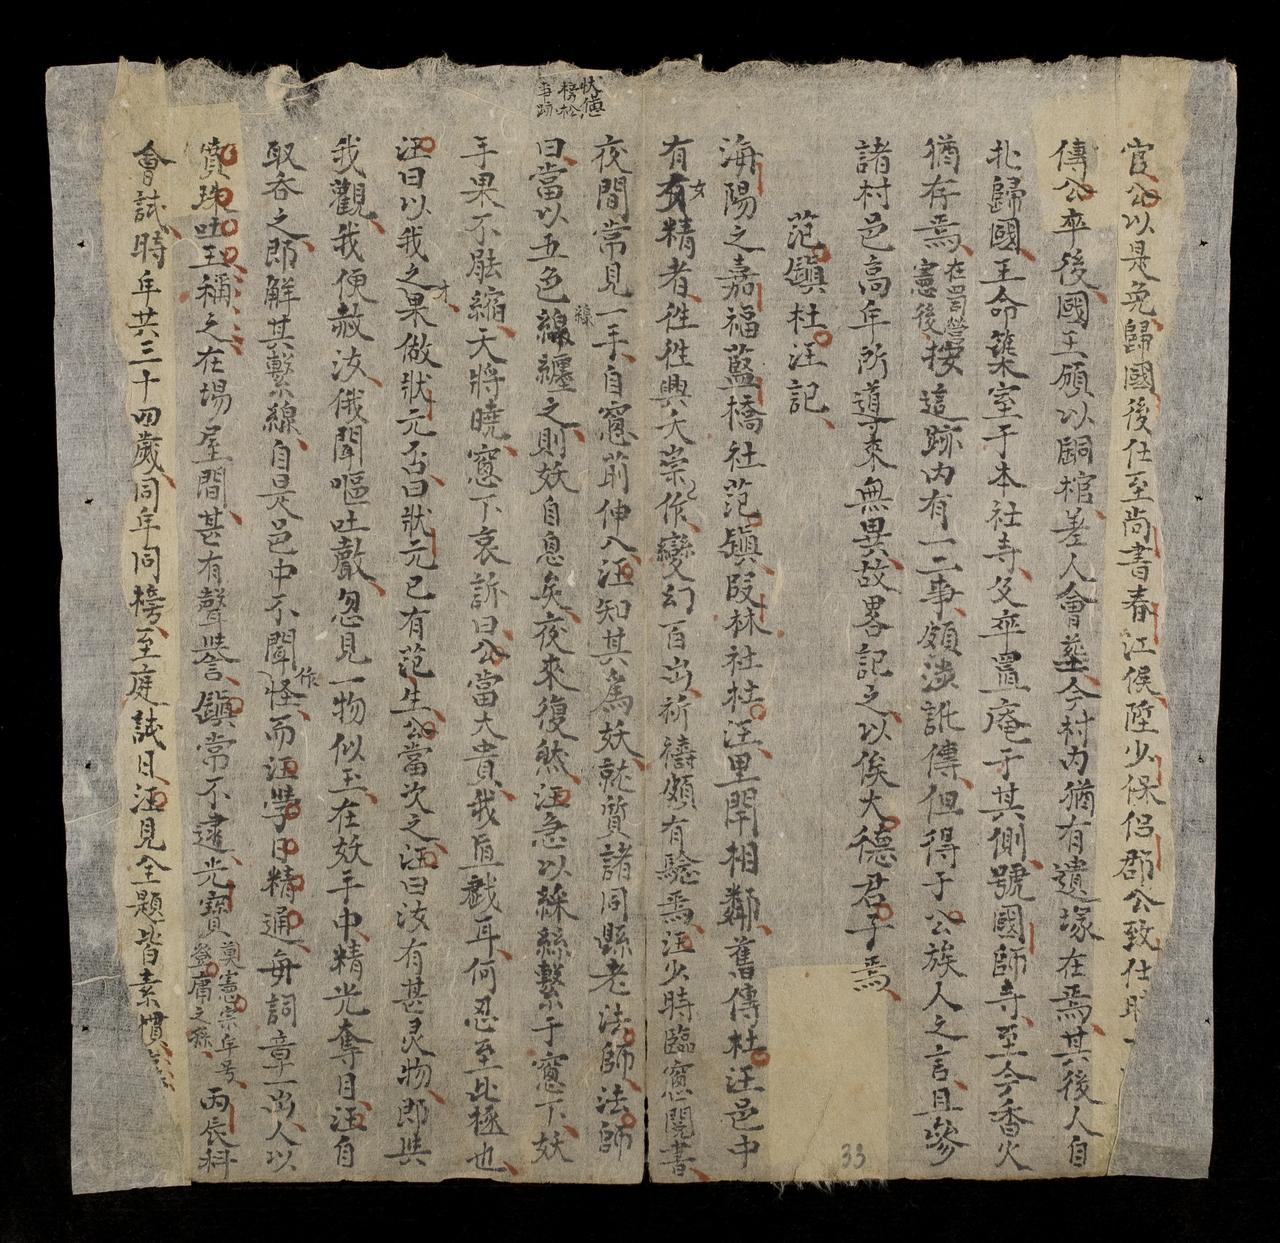 官公以是免歸國後仕至尚書春江侯陞少保侶郡公致仕
傳公卒後國王頒以銅棺差人會葬今村內猶有遺塚在焉其後人自
北歸國王命築室于本社寺父卒置庵于其側號國師寺至今香火
猶存焉憲後按這跡內有一二事頗涉訛傳但得于公族人之言且參
諸村邑高年所道來無異故畧記之以俟大德君子焉
范鎮杜汪記
海陽之嘉福藍橋社范鎮段林社杜汪里閈相鄰舊傳杜汪邑中
有女精者徃徃興夭祟作變幻百出祈禱頗有驗焉汪少時臨窓閱書
夜間常見一手自窓前伸入汪知其為妖就質諸同縣老法師法師
曰當以五色線纏之則妖自息矣夜來復然汪急以綵絲繫于窓下妖
手果不能縮天將曉窓下哀訴曰公當大貴我直戱耳何忍至此極也
汪曰以我之才果做狀元否曰狀元已有范生公當次之汪曰汝有甚灵物郎與
我觀我便赦汝俄聞嘔吐聲忽見一物似玉在妖手中精光奪目汪自
取吞之即解其繫線自是邑中不聞作怪而汪學日精通每詞章一出人以
噴珠吐玉稱之在塲屋間甚有聲譽鎮常不逮光寶莫憲宗年号丙辰科
會試時年共三十四歲同年同榜至庭試日汪見全題皆素慣